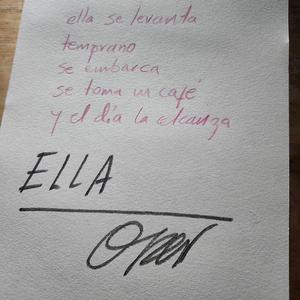 ella se levanta
temprano
se embarca
se toma un café
y el día la alcanza
ELLA